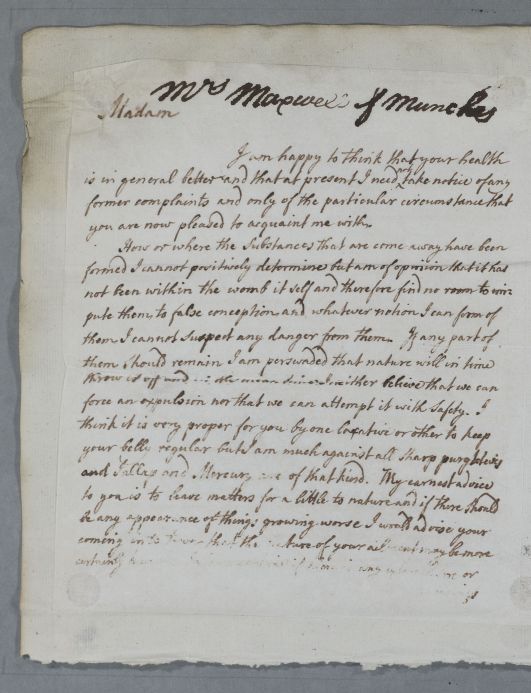 Mrs Maxwell of Munches
Madam
I am happy to think that your health
is in general better and that at present I need not take notice of any
former complaints and only of the particular circumstance that
you are now pleased to acquaint me with.
How or where the Substances that are come away have been
formed I cannot positively determine but am of opinion that it has
not been within the womb it self and therefore find no room to im-
pute them to false conception and whatever notion I can form of
them I cannot Suspect any danger from them. If any part of
them Should remain I am perswaded that nature will in time
throw it off and in the mean time I neither believe that we can
force an expulsion nor that we can attempt it with Safety. I
think it is very proper for you by one laxative or other to keep
your belly regular but I am much against all Sharp purgatives
and Jallap and Mercury are of that kind. My earnest advice
to you is to leave matters for a little to nature and if there Should
be any appearance of things growing worse I would advise your
coming in to Town that the nature of your ailment may be more
certainly any or